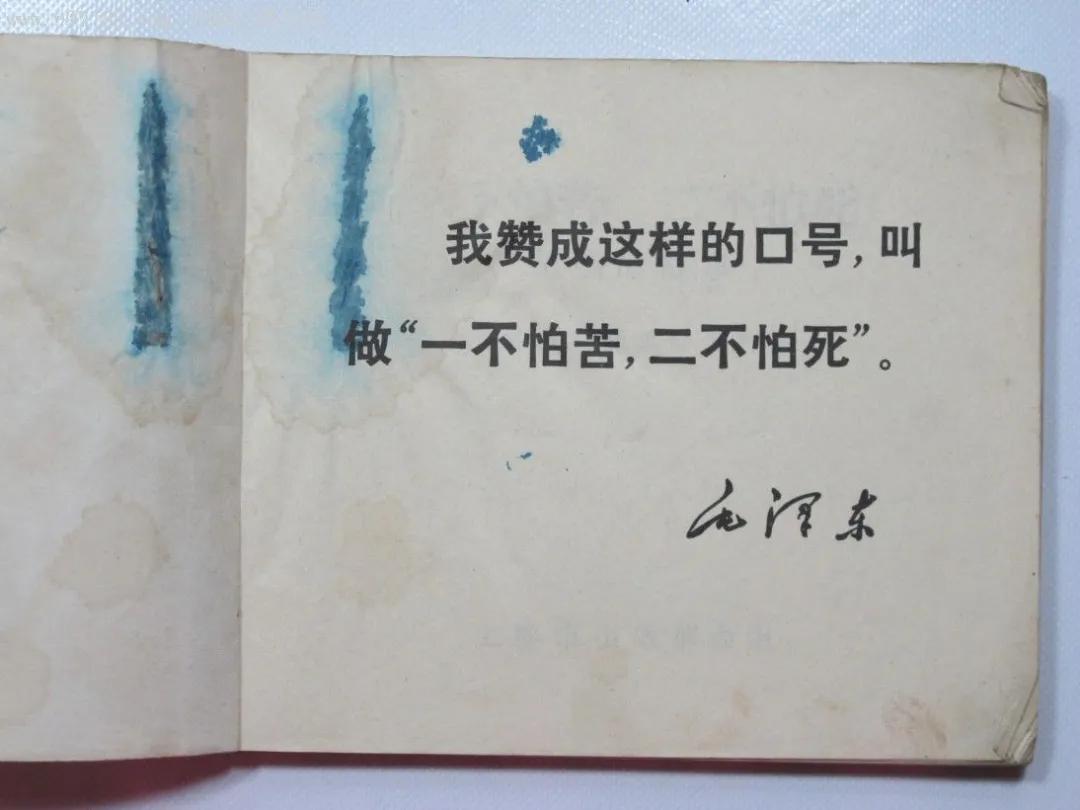 我赞成这样的口号,叫
做“一不怕苦,二不怕死”。
毛泽东